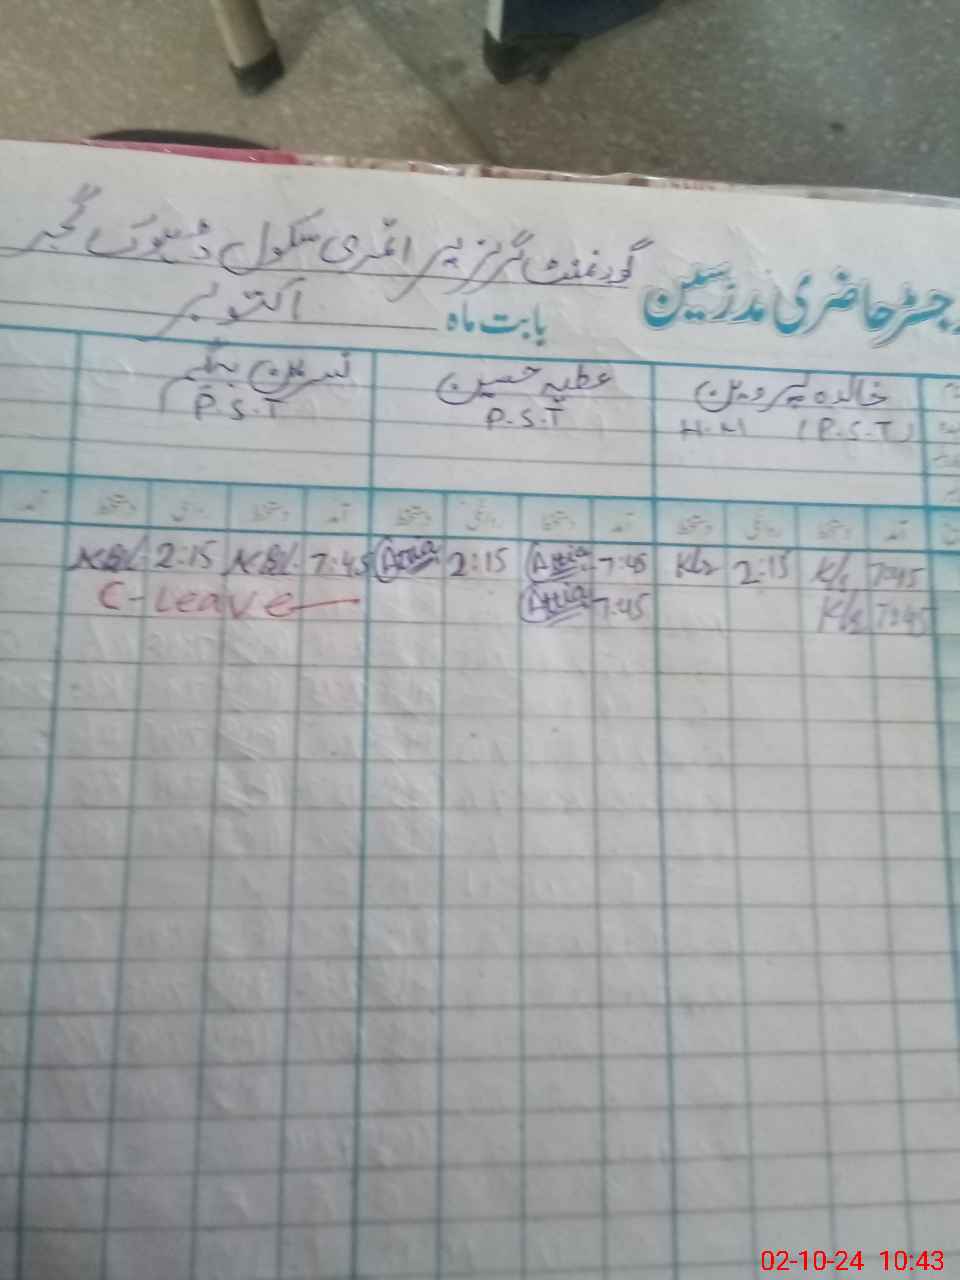 رجسٹر حاضری مدرسین گورنمنٹ گرلز پرائمری سکول ڈھوک گجر
بابت ماہ اکتوبر
خالدہ پروین عطیہ حسین نسرین بیگم
H.M (P.S.T) P.S.T P.S.T
آمد دستخط روانگی دستخط آمد دستخط روانگی دستخط آمد دستخط روانگی دستخط آمد
7:45 2:15 7:45 Attia 2:15 Attia 7:45 2:15
7:45 7:45 Attia C-Leave
02-10-24 10:43